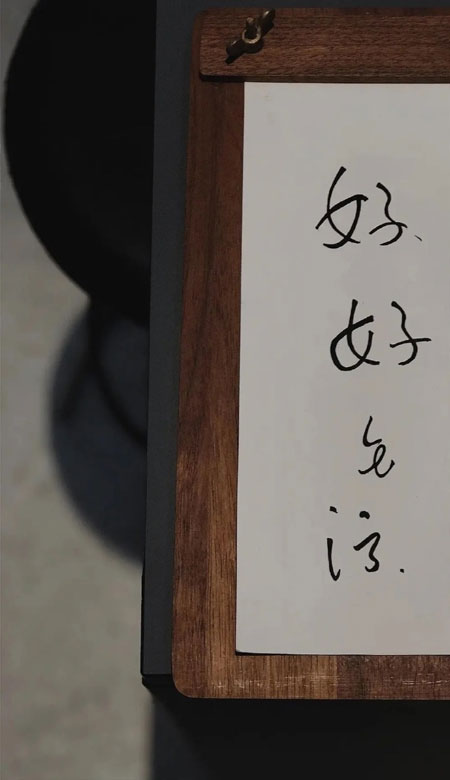 好
好
生
活